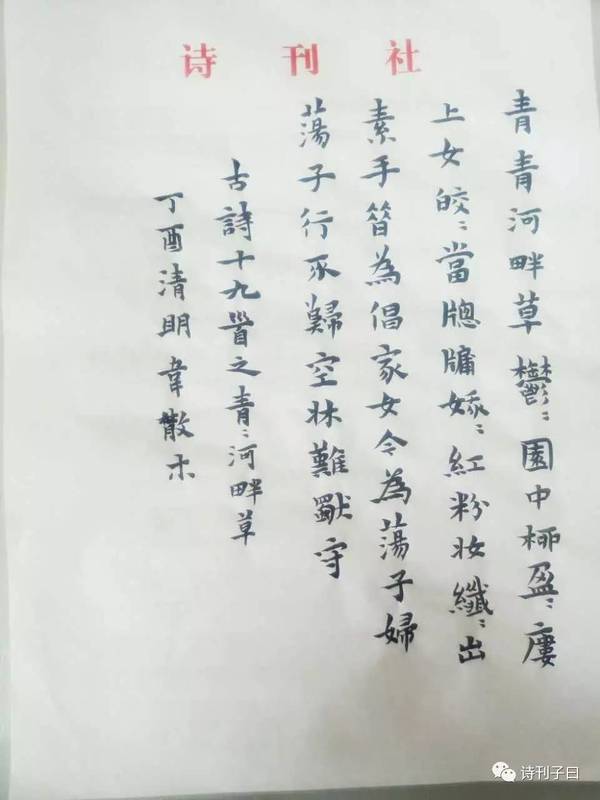 诗刊社
青青河畔草鬱〻園中柳盈〻廔
上女皎〻當牕牖娥〻紅粉妝纖〻出
素手昔為倡家女今為蕩子婦
蕩子行不歸空牀難獨守
古詩十九首之青〻河畔草
丁酉清明韋散木
诗刊子曰